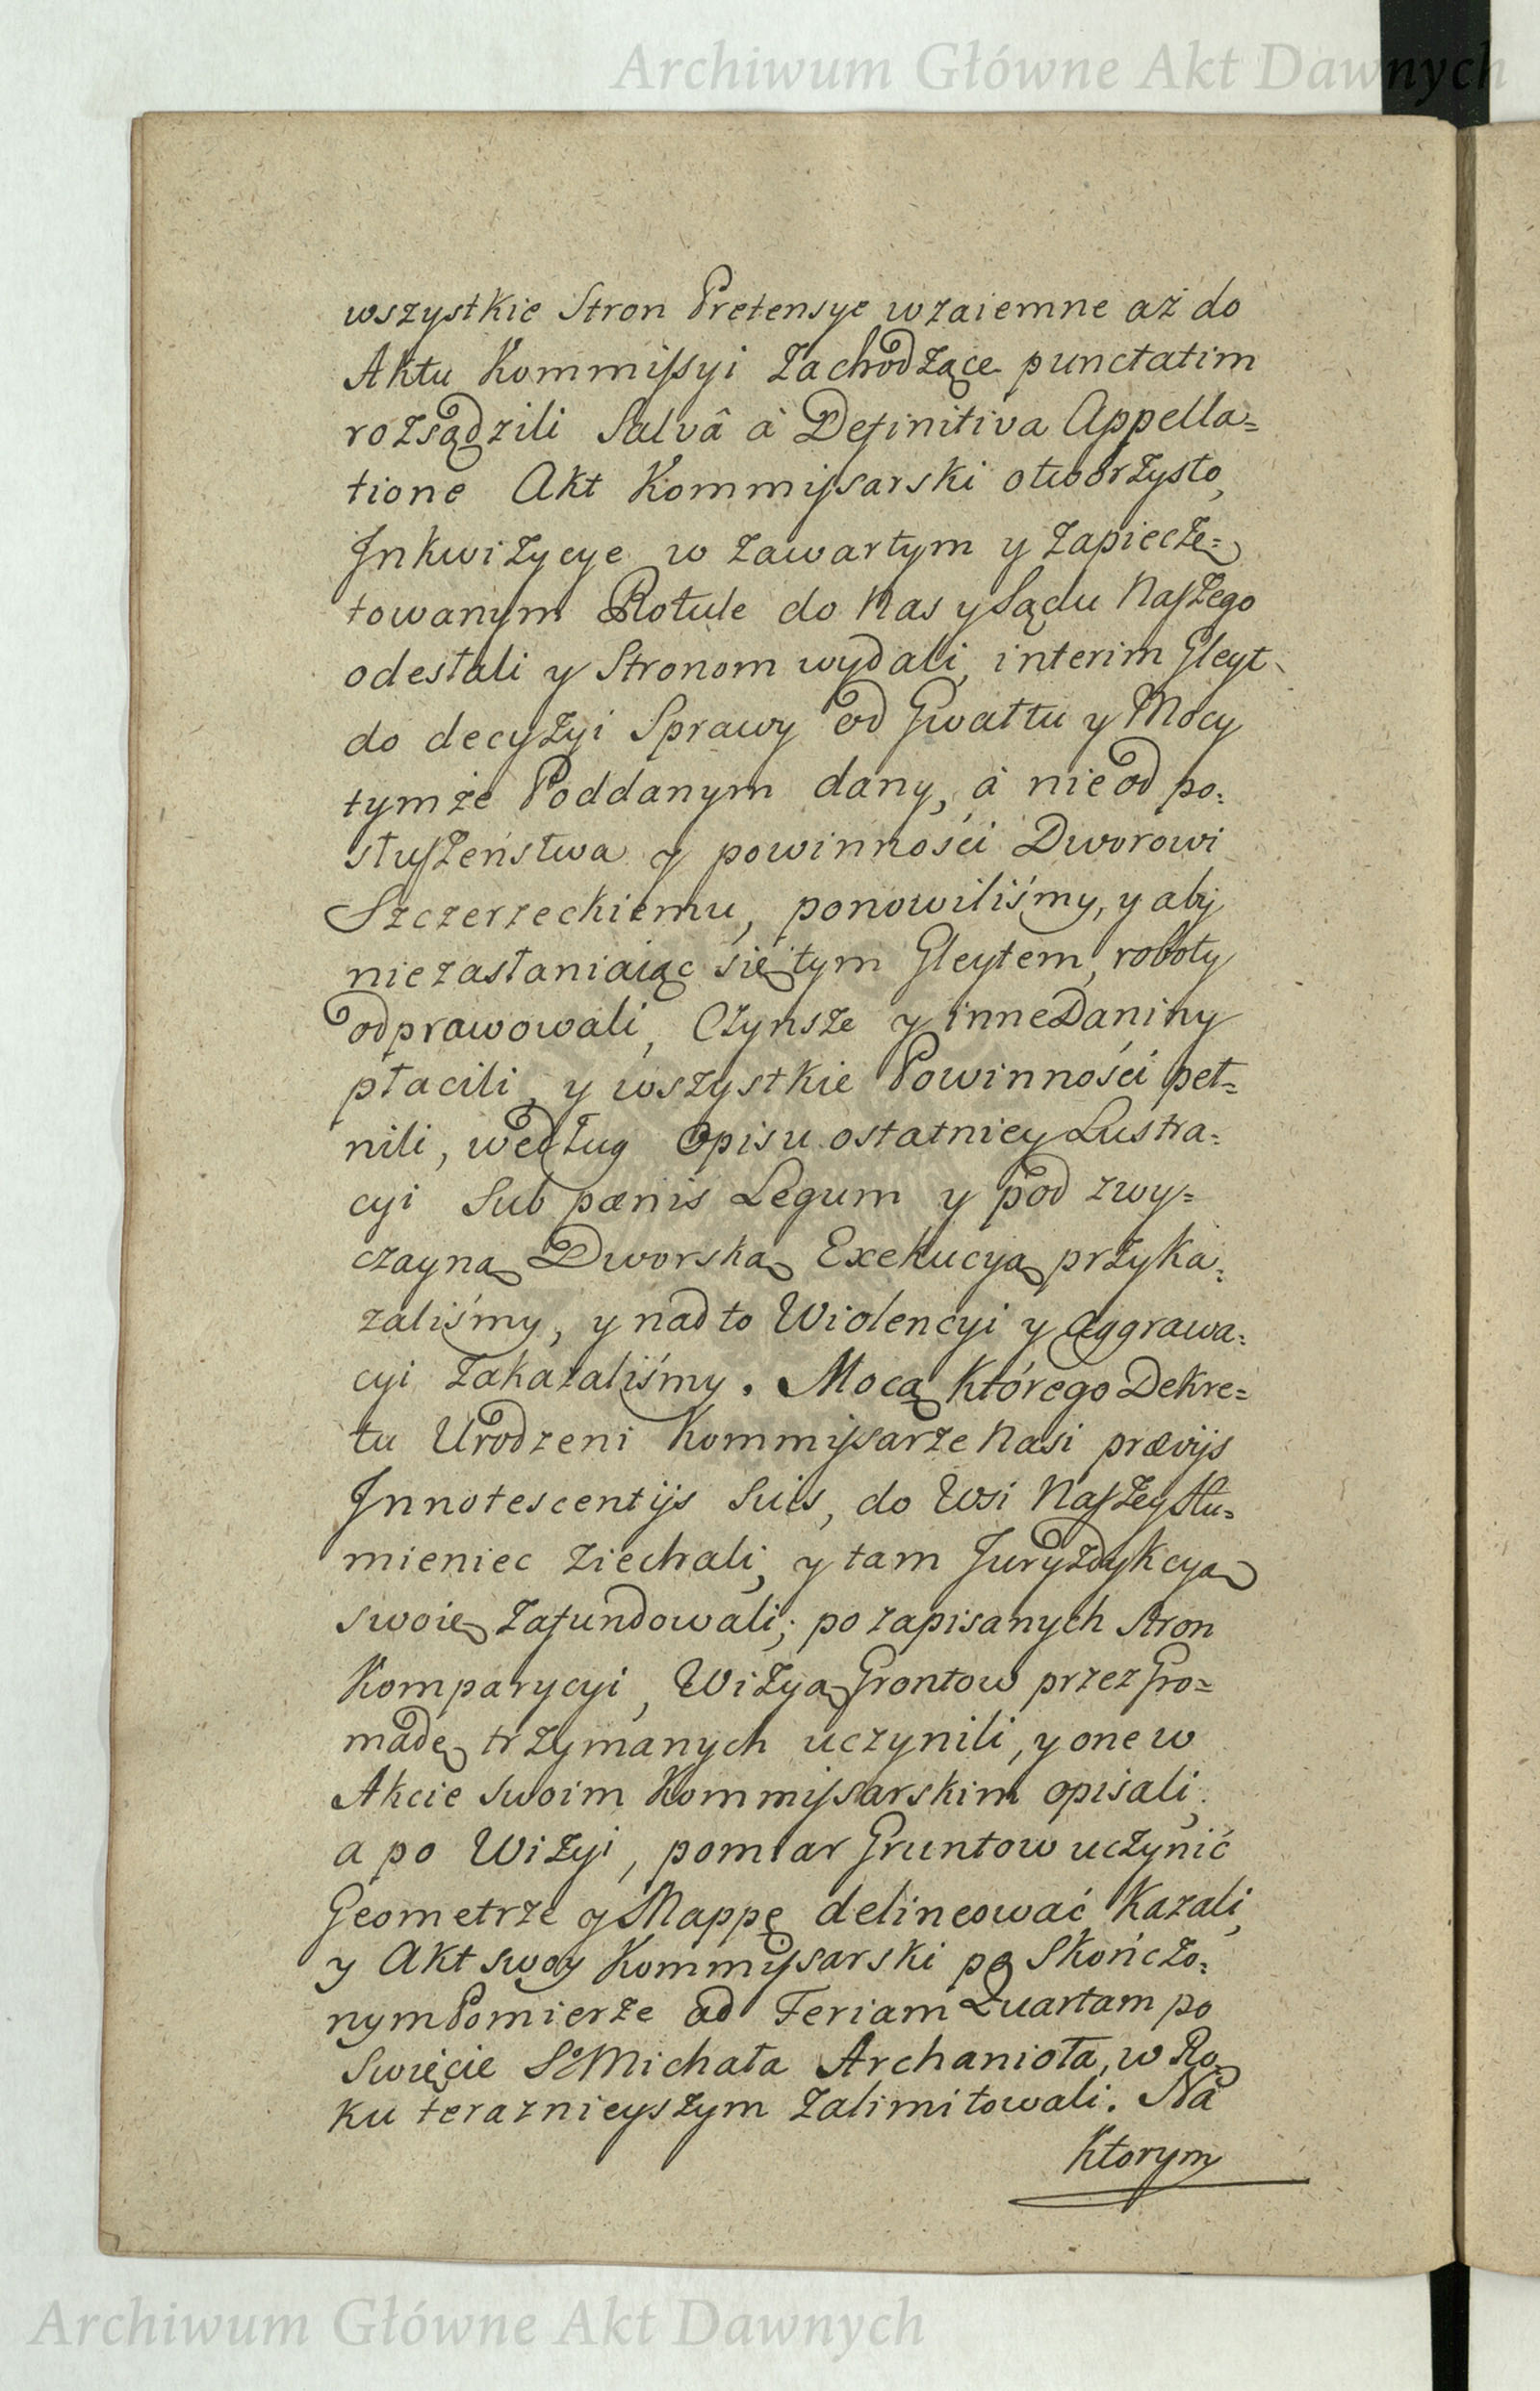 Archiwum Główne Akt Dawnych
wszystkie Stron Pretensye wzaiemne aż do
Aktu Kommissyi Zachodzące punctatim
rozsądzili Salvâ à Definitiva Appella=
tione Akt Kommissarski otworzysto,
Inkwizycye w Zawartym y Zapieczę=
towanym Rotule do Nas y Sądu Naszego
odesłali y Stronom wydali, interim Gleyt
do decyzyi Sprawy od Gwałtu y Mocy
tymże Poddanym dany, à nie od po=
słuszeństwa y powinności Dworowi
Szczerzeckiemu, ponowiliśmy, y aby
niezasłaniaiąc się tym Gleytem, roboty
odprawowali, Czynsze y inne Daniny
płacili, y wszystkie Powinności peł=
nili, według Opisu ostatniey Lustra=
cyi Sub pænis Legum y pod zwy=
czayną Dworską Exekucyą przyka=
zaliśmy, y nadto Wiolencyi y Aggrawa=
cyi Zakazaliśmy. Mocą Którego Dekre=
tu Urodzeni Kommissarze Nasi prævijs
Innotescentijs Suis, do Wsi Naszey Stu=
mieniec Ziechali, y tam Juryzdykcyą
swoię Zafundowali; po zapisanych Stron
Komparycyi, Wizyą Grontow przez Gro=
madę trzymanych uczynili, y one w
Akcie Swoim Kommissarskim opisali,
a po Wizyi, pomiar Gruntow uczynić
Geometrze y Mappę delineować Kazali,
y Akt swoy Kommissarski po Skończo=
nym Pomierze ad Feriam Quartam po
Swięcie So Michała Archanioła, w Ro=
ku teraznieyszym Zalimitowali. Na
Ktorym
Archiwum Główne Akt Dawnych